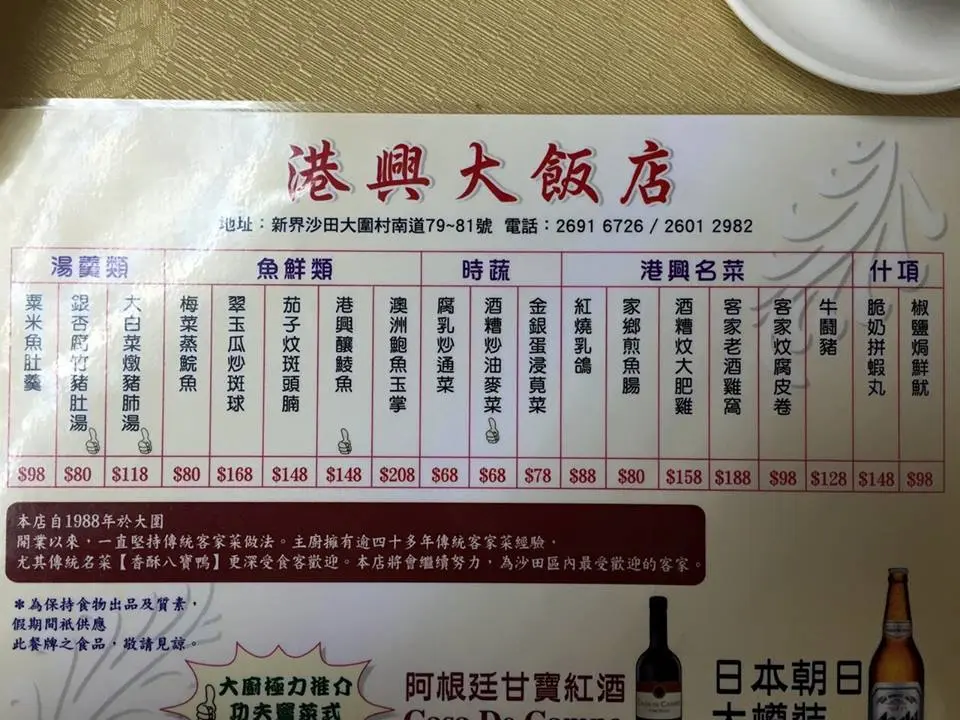 港興大飯店
地址：新界沙田大圍村南道79~81號 電話：2691 6726 / 2601 2982
湯羹類 魚鮮類 時蔬 港興名菜 什項
粟米魚肚羹 $98
銀杏腐竹豬肚湯 $80
大白菜燉豬肺湯 $118
梅菜蒸鯇魚 $80
翠玉瓜炒斑球 $168
茄子炆斑頭腩 $148
港興釀鯪魚 $148
澳洲鮑魚玉掌 $208
腐乳炒通菜 $68
酒糟炒油麥菜 $68
金銀蛋浸莧菜 $78
紅燒乳鴿 $88
家鄉煎魚腸 $80
酒糟炆大肥雞 $158
客家老酒雞窩 $188
客家炆腐皮卷 $98
牛鬪豬 $128
脆奶拼蝦丸 $148
椒鹽焗鮮魷 $98
本店自1988年於大圍
開業以來，一直堅持傳統客家菜做法。主廚擁有逾四十多年傳統客家菜經驗，
尤其傳統名菜【香酥八寶鴨】更深受食客歡迎。本店將會繼續努力，為沙田區內最受歡迎的客家。
＊為保持食物出品及質素，
假期間祇供應
此餐牌之食品，敬請見諒。
大廚極力推介
功夫
阿根廷甘寶紅酒
Casa De Campo
日本朝日
大樽裝